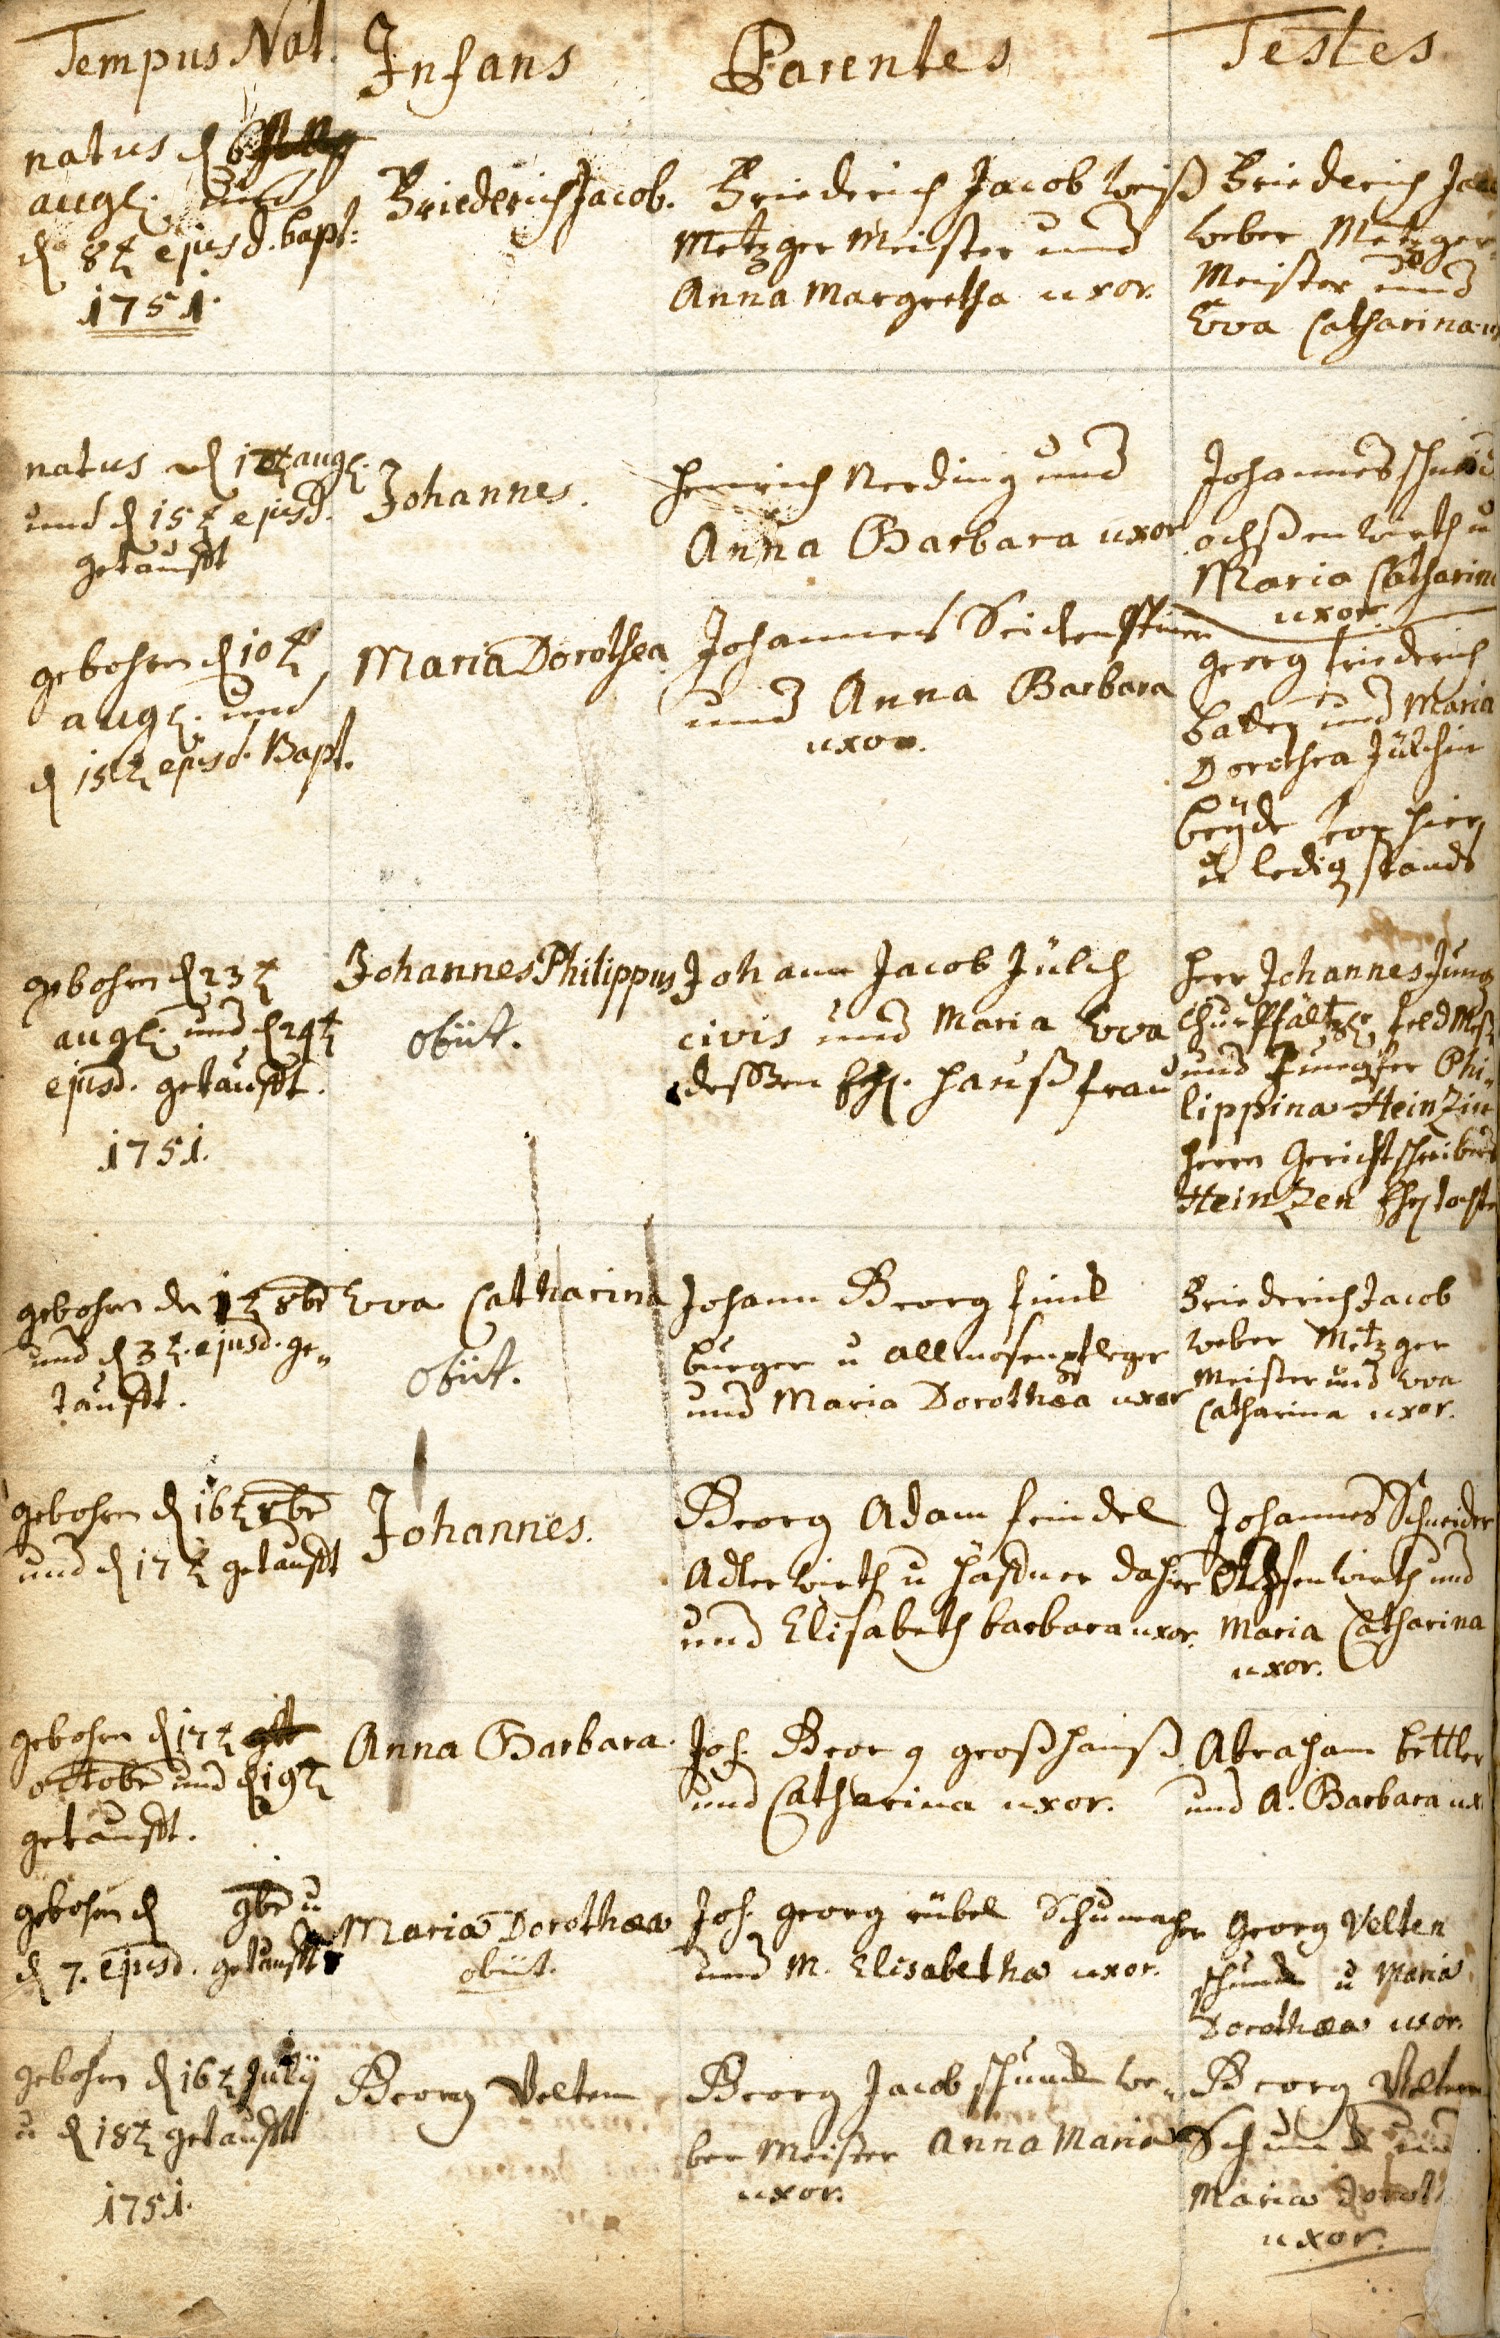 Tempus Nat. Infans Parentes Testes
natus d 6
augs. und
d 8t ejusd. bapt:
1751.
Friederich Jacob.
Friederich Jacob Weiß
Metzger Meister und
Anna Margretha uxor.
Friederich Jac
Weber Metzger
Meister und
Eva Catharina
natus d augs.
und d 15t ejusd.
getaufft
Johannes.
Henrich Nerding und
Anna Barbara uxor
Johannes Schneid
ochßenwirth u
Maria Catharin
uxor.
gebohren d 10t
augs. und
d 15t ejusd. Bapt.
Maria Dorothea
Johannes
und Anna Barbara
uxor.
georg friederich
und Maria
Dorothea Jülchin
beÿde von hier
u ledig stands
gebohren d 23t
augs. und d 24t
ejusd. getaufft.
1751.
Johannes Philippus
obiit.
Johann Jacob Jülch
civis und Maria Eva
deßßen Ehl. Haußfrau
Herr Johannes Jung
ChurPfältz. feld Meß
und Jungfer Phi„
lippina Heinzin
Herrn Gerichtschreibers
Heinzen Ehl tochte
gebohren den 1t 8br
und d 3t. ejusd. ge„
taufft.
Eva Catharina
obiit.
Johann Georg finck
burger u allmosenpfleger
und Maria Dorothea uxor
Friederich Jacob
Weber Metzger
Meister und Eva
Catharina uxor.
gebohren d 16t 8br
und d 17t getaufft
Johannes.
Georg Adam feindel
Adlerwirth u Haffner dahier
und Elisabeth barbara uxor.
Johannes Schneider
Ochsenwirth und
Maria Catharina
uxor.
gebohren d 17t
octobr und d 19t
getaufft.
Anna Barbara.
Joh. Georg großhanß
und Catharina uxor.
Abraham bettler
und A. Barbara ux
gebohren d 9br u
d 7. ejusd. getaufft
Maria Dorothea
obiit.
Joh. georg rübel Schumacher
und M. Elisabetha uxor.
Georg Velten
schunck u Maria
Dorothea uxor.
gebohren d 16t Julÿ
u d 18t getaufft
1751.
Georg Velten
Georg Jacob schunck we„
ber Meister Anna Maria
uxor.
Georg Velten
Schunck und
Maria Doroth
uxor.